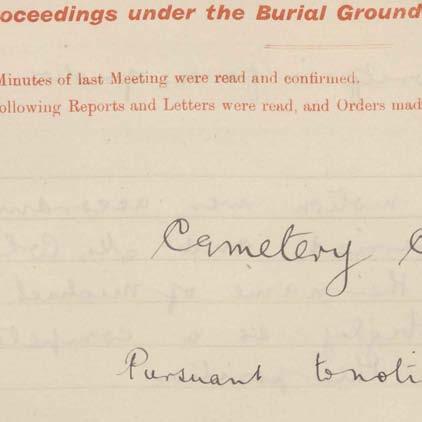 oceedings under the Burial Ground
Minutes of last Meeting were read and confirmed.
ollowing Reports and Letters were read, and Orders mad
Cemetery C
Pursuant to noti